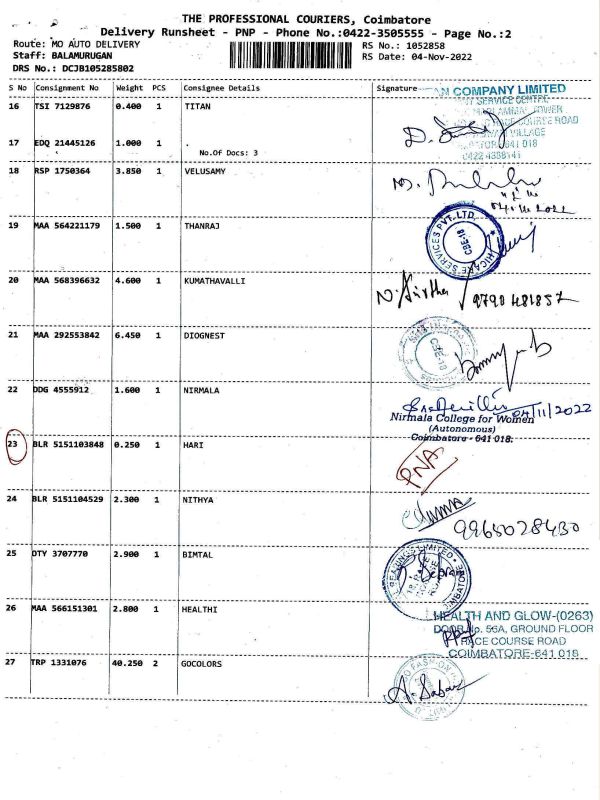 THE PROFESSIONAL COURIERS, Coimbatore
Delivery Runsheet - PNP - Phone No.:0422-3505555 - Page No.:2
Route: MO AUTO DELIVERY RS No.: 1052858
Staff: BALAMURUGAN RS Date: 04-Nov-2022
DRS No.: DCJB105285802
S No Consignment No Weight PCS Consignee Details Signature
16 TSI 7129876 0.400 1 TITAN
COMPANY LIMITED
SERVICE CENTRE,
TOWER
RACE COURSE ROAD
VILLAGE
641 018
17 EDQ 21445126 1.000 1 .
No.Of Docs: 3
18 RSP 1750364 3.850 1 VELUSAMY
19 MAA 564221179 1.500 1 THANRAJ
SERVICES PVT. LTD.
CBE-18
20 MAA 568396632 4.600 1 KUMATHAVALLI
9790481857
21 MAA 292553842 6.450 1 DIOGNEST
CBE-18
22 DDG 4555912 1.600 1 NIRMALA
04/11/2022
Nirmala College for Women
(Autonomous)
Coimbatore - 641 018.
23 BLR 5151103848 0.250 1 HARI
PNA
24 BLR 5151104529 2.300 1 NITHYA
9965028430
25 DTY 3707770 2.900 1 BIMTAL
26 MAA 566151301 2.800 1 HEALTHI
HEALTH AND GLOW-(0263)
DOOR No. 56A, GROUND FLOOR
RACE COURSE ROAD
COIMBATORE-641 018
27 TRP 1331076 40.250 2 GOCOLORS